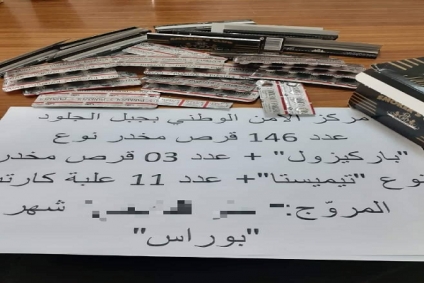 مركز الأمن الوطني بجبل الجلود
عدد 146 قرص مخدر نوع
"باركيزول" + عدد 03 قرص مخدر
نوع "تيميستا"+ عدد 11 علبة كارت
المروّج:" شهر
"بوراس"